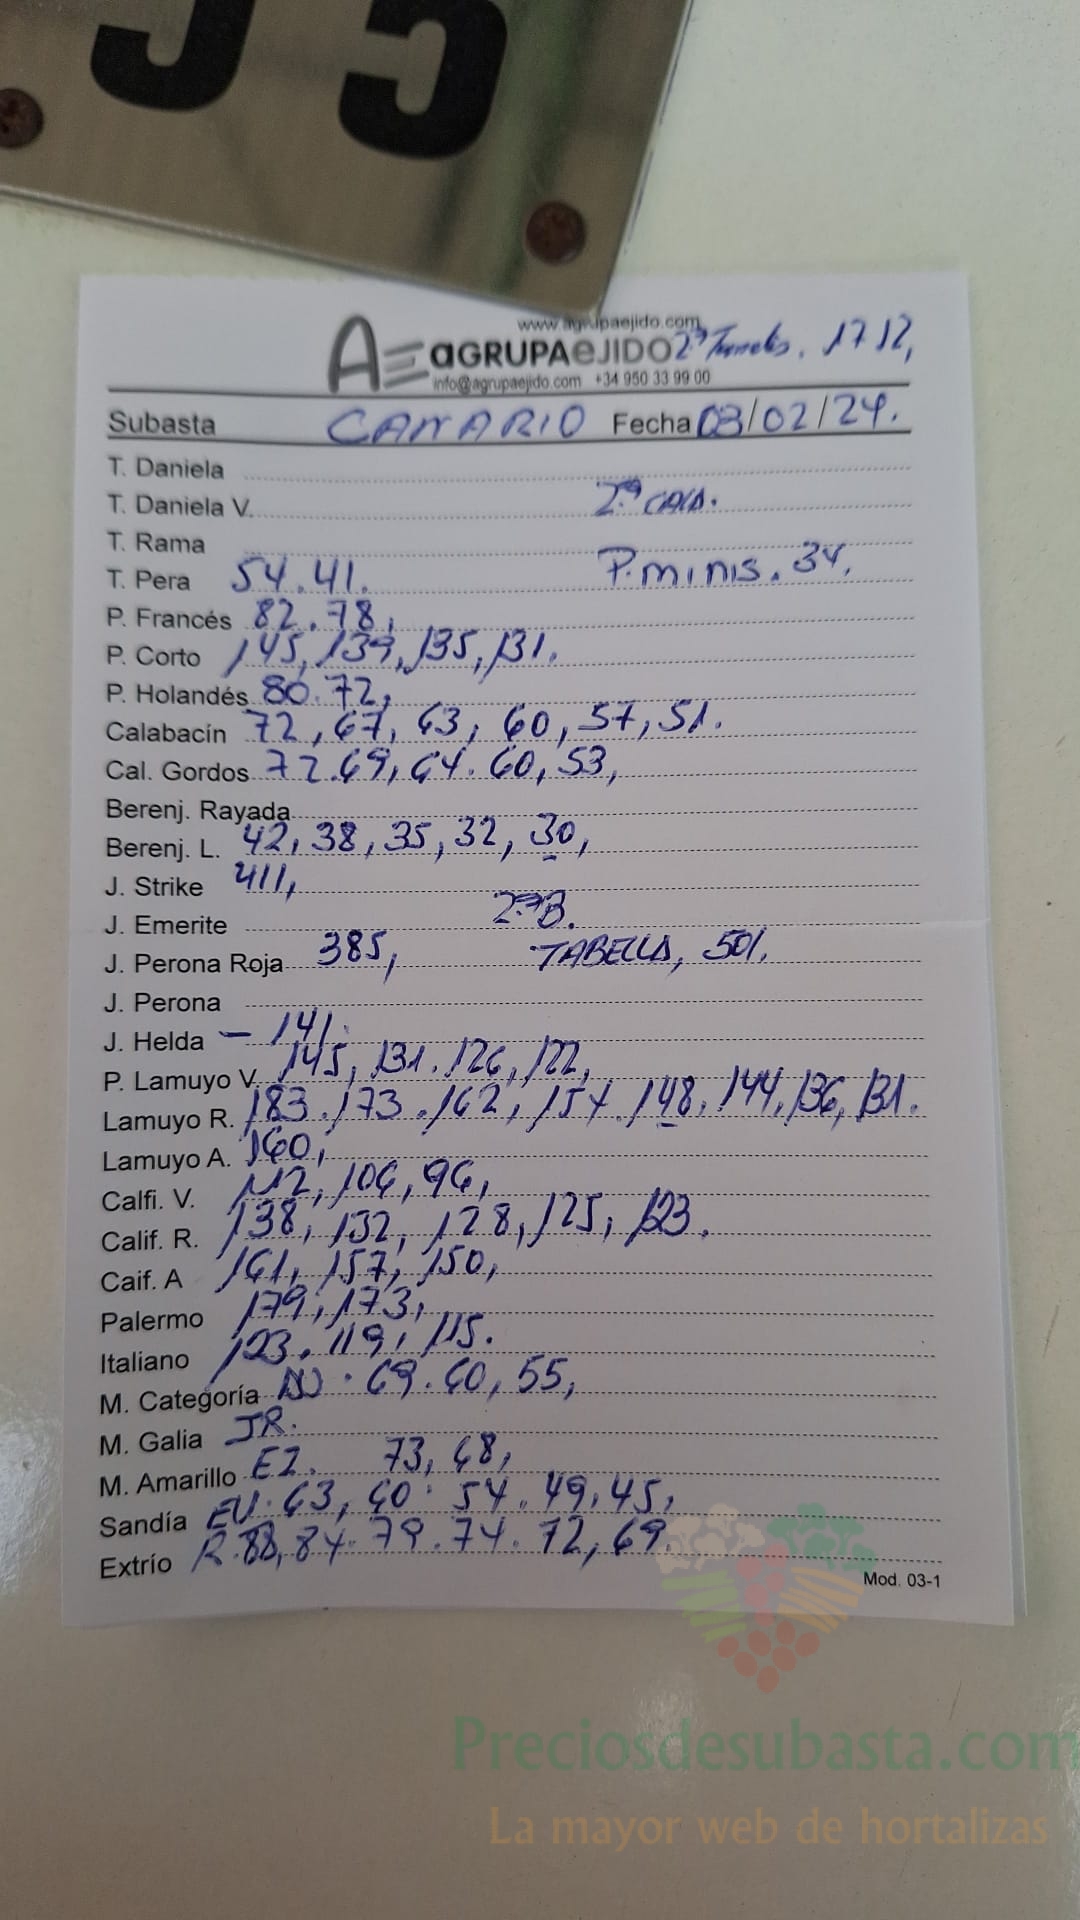 35
www.agrupaejido.com
AGRUPAEJIDO 2ª Tunnels. 17 12,
info@agrupaejido.com +34 950 33 99 00
Subasta CANARIO Fecha 03/02/24.
T. Daniela
T. Daniela V. 2ª CAID.
T. Rama
T. Pera 54.41. P. minis. 34,
P. Francés 82.78,
P. Corto 145, 139, 135, 131.
P. Holandés 80.72,
Calabacín 72, 67, 63, 60, 57, 51.
Cal. Gordos 72.69, 64. 60, 53,
Berenj. Rayada
Berenj. L. 42, 38, 35, 32, 30,
J. Strike 411,
J. Emerite 2ª B.
J. Perona Roja 385, TABELLA, 501,
J. Perona
J. Helda - 141.
P. Lamuyo V. 145, 131. 126, 122,
Lamuyo R. 183. 173. 162, 154. 148, 144, 136, 131.
Lamuyo A. 160,
Calfi. V. 112, 106, 96,
Calif. R. 138, 132, 128, 125, 123.
Caif. A 161, 157, 150,
Palermo 179, 173,
Italiano 123. 119, 115.
M. Categoría 69. 60, 55,
M. Galia JR.
M. Amarillo EZ. 73, 68,
Sandía EU. 63, 60. 54. 49. 45,
Extrío R. 88, 84. 79. 74. 72, 69.
Mod. 03-1
Preciosdesubasta.com
La mayor web de hortalizas